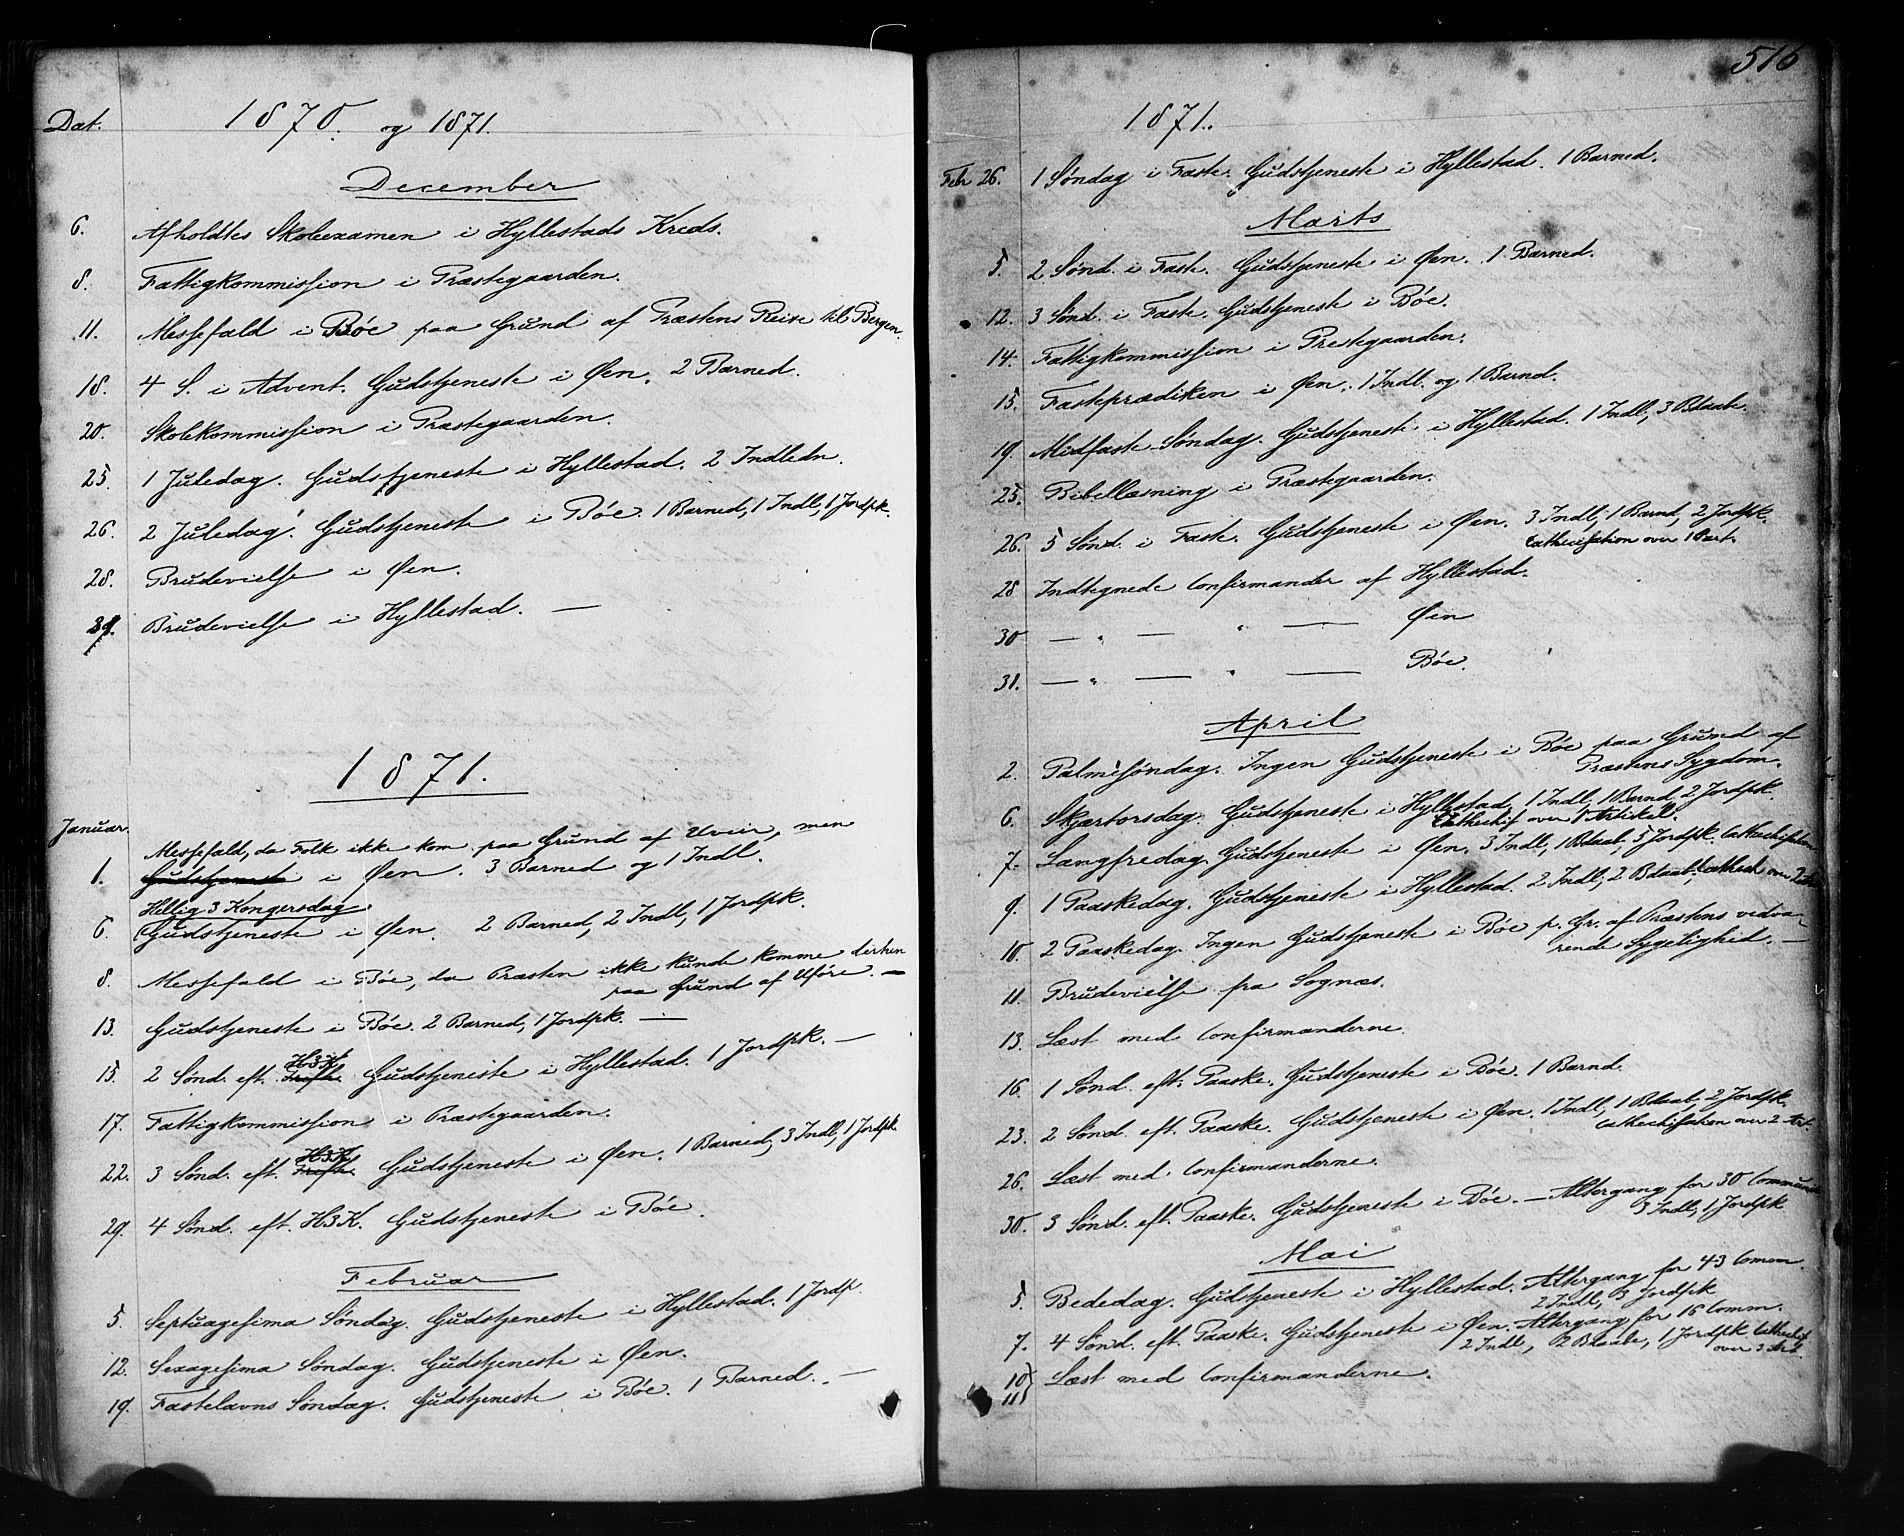 Dat.
1870. og 1871.
December
6. Afholdtes Skoleexamen i Hyllestads Kreds.
8. Fattigkommission i Præstegaarden.
11. Messefald i Bøe paa Grund af Præstens Reise til Bergen.
18. 4 S. i Advent. Gudstjeneste i Øen. 2 Barned.
20. Skolekommission i Præstegaarden.
25. 1 Juledag. Gudstjeneste i Hyllestad. 2 Indledn.
26. 2 Juledag. Gudstjeneste i Bøe. 1 Barned, 1 Indl, 1 Jordpk.
28. Brudevielse i Øen.
Brudevielse i Hyllestad. —
1871.
Januar.
Messefald, da Folk ikke kom paa Grund af Uveir, men
1. Gudstjeneste i Øen. 3 Barned og 1 Indl.
Hellig 3 Kongersdag.
6. Gudstjeneste i Øen. 2 Barned, 2 Indl, 1 Jordpk.
8. Messefald i Bøe, da Præsten ikke kunde komme derhen
paa Grund af Uføre. —
13. Gudstjeneste i Bøe. 2 Barned, 1 Jordpk. —
H3K
15. 2 Sønd. eft. Trefh. Gudstjeneste i Hyllestad. 1 Jordpk. —
17. Fattigkommission i Præstegaarden.
H3K
22. 3 Sønd. eft. Trefh. Gudstjeneste i Øen. 1 Barned, 3 Indl, 1 Jordpk
29. 4 Sønd. eft. H3K. Gudstjeneste i Bøe.
Februar
5. Septuagesima Søndag. Gudstjeneste i Hyllestad. 1 Jordp.
12. Sexagesima Søndag. Gudstjeneste i Øen.
19. Fastelavns Søndag. Gudstjeneste i Bøe. 1 Barned. —
516
1871.
Febr 26. 1 Søndag i Faste. Gudstjeneste i Hyllestad. 1 Barned.
Marts
5. 2 Sønd. i Faste. Gudstjeneste i Øen. 1 Barned.
12. 3 Sønd. i Faste. Gudstjeneste i Bøe.
14. Fattigkommission i Prestegaarden.
15. Fasteprædiken i Øen. 1 Indl. og 1 Barnd.
19. Midfaste Søndag. Gudstjeneste i Hyllestad. 1 Indl, 3 Bdaab.
25. Bibellæsning i Præstegaarden.
26. 5 Sønd. i Faste. Gudstjeneste i Øen. 3 Indl, 1 Barnd, 2 Jordpk.
Cathecisation over 1 Part.
28 Indtegnede Confirmander af Hyllestad.
30 — " — " — Øen
31. — " — " — Bøe.
April
2. Palmesøndag. Ingen Gudstjeneste i Bøe paa Grund af
Præstens Sygdom.
6. Skjærtorsdag. Gudstjeneste i Hyllestad, 1 Indl, 1 Barnd, 2 Jordpk.
Cathechis over 1 Artikel.
7. Langfredag. Gudstjeneste i Øen. 3 Indl, 1 Bdaab, 5 Jordpk. Cathechisation
9. 1 Paaskedag. Gudstjeneste i Hyllestad. 2 Indl, 2 Bdaab, Cathech over 2 Art
10. 2 Paaskedag. Ingen Gudstjeneste i Bøe p. Gr. af Præstens vedva-
rende Sygelighed. —
11. Brudevielse fra Sognæs.
13. Læst med Confirmanderne.
16. 1 Sønd. eft. Paaske. Gudstjeneste i Bøe. 1 Barnd.
23. 2 Sønd. eft. Paaske. Gudstjeneste i Øen. 1 Indl, 1 Bdaab, 2 Jordpk.
Cathechisation over 2 Art.
26. Læst med Confirmanderne.
30. 3 Sønd. eft. Paaske. Gudstjeneste i Bøe. — Altergang for 30 Commun
3 Indl, 1 Jordpk
Mai
5. Bededag. Gudstjeneste i Hyllestad. Altergang for 43 Comm.
2 Indl, 3 Jordpk
7. 4 Sønd. eft. Paaske. Gudstjeneste i Øen. Altergang for 16 Comm.
2 Indl, 2 Bdaab, 1 Jordpk Cathechis
over 3 Art.
10 } Læst med Confirmanderne.
11